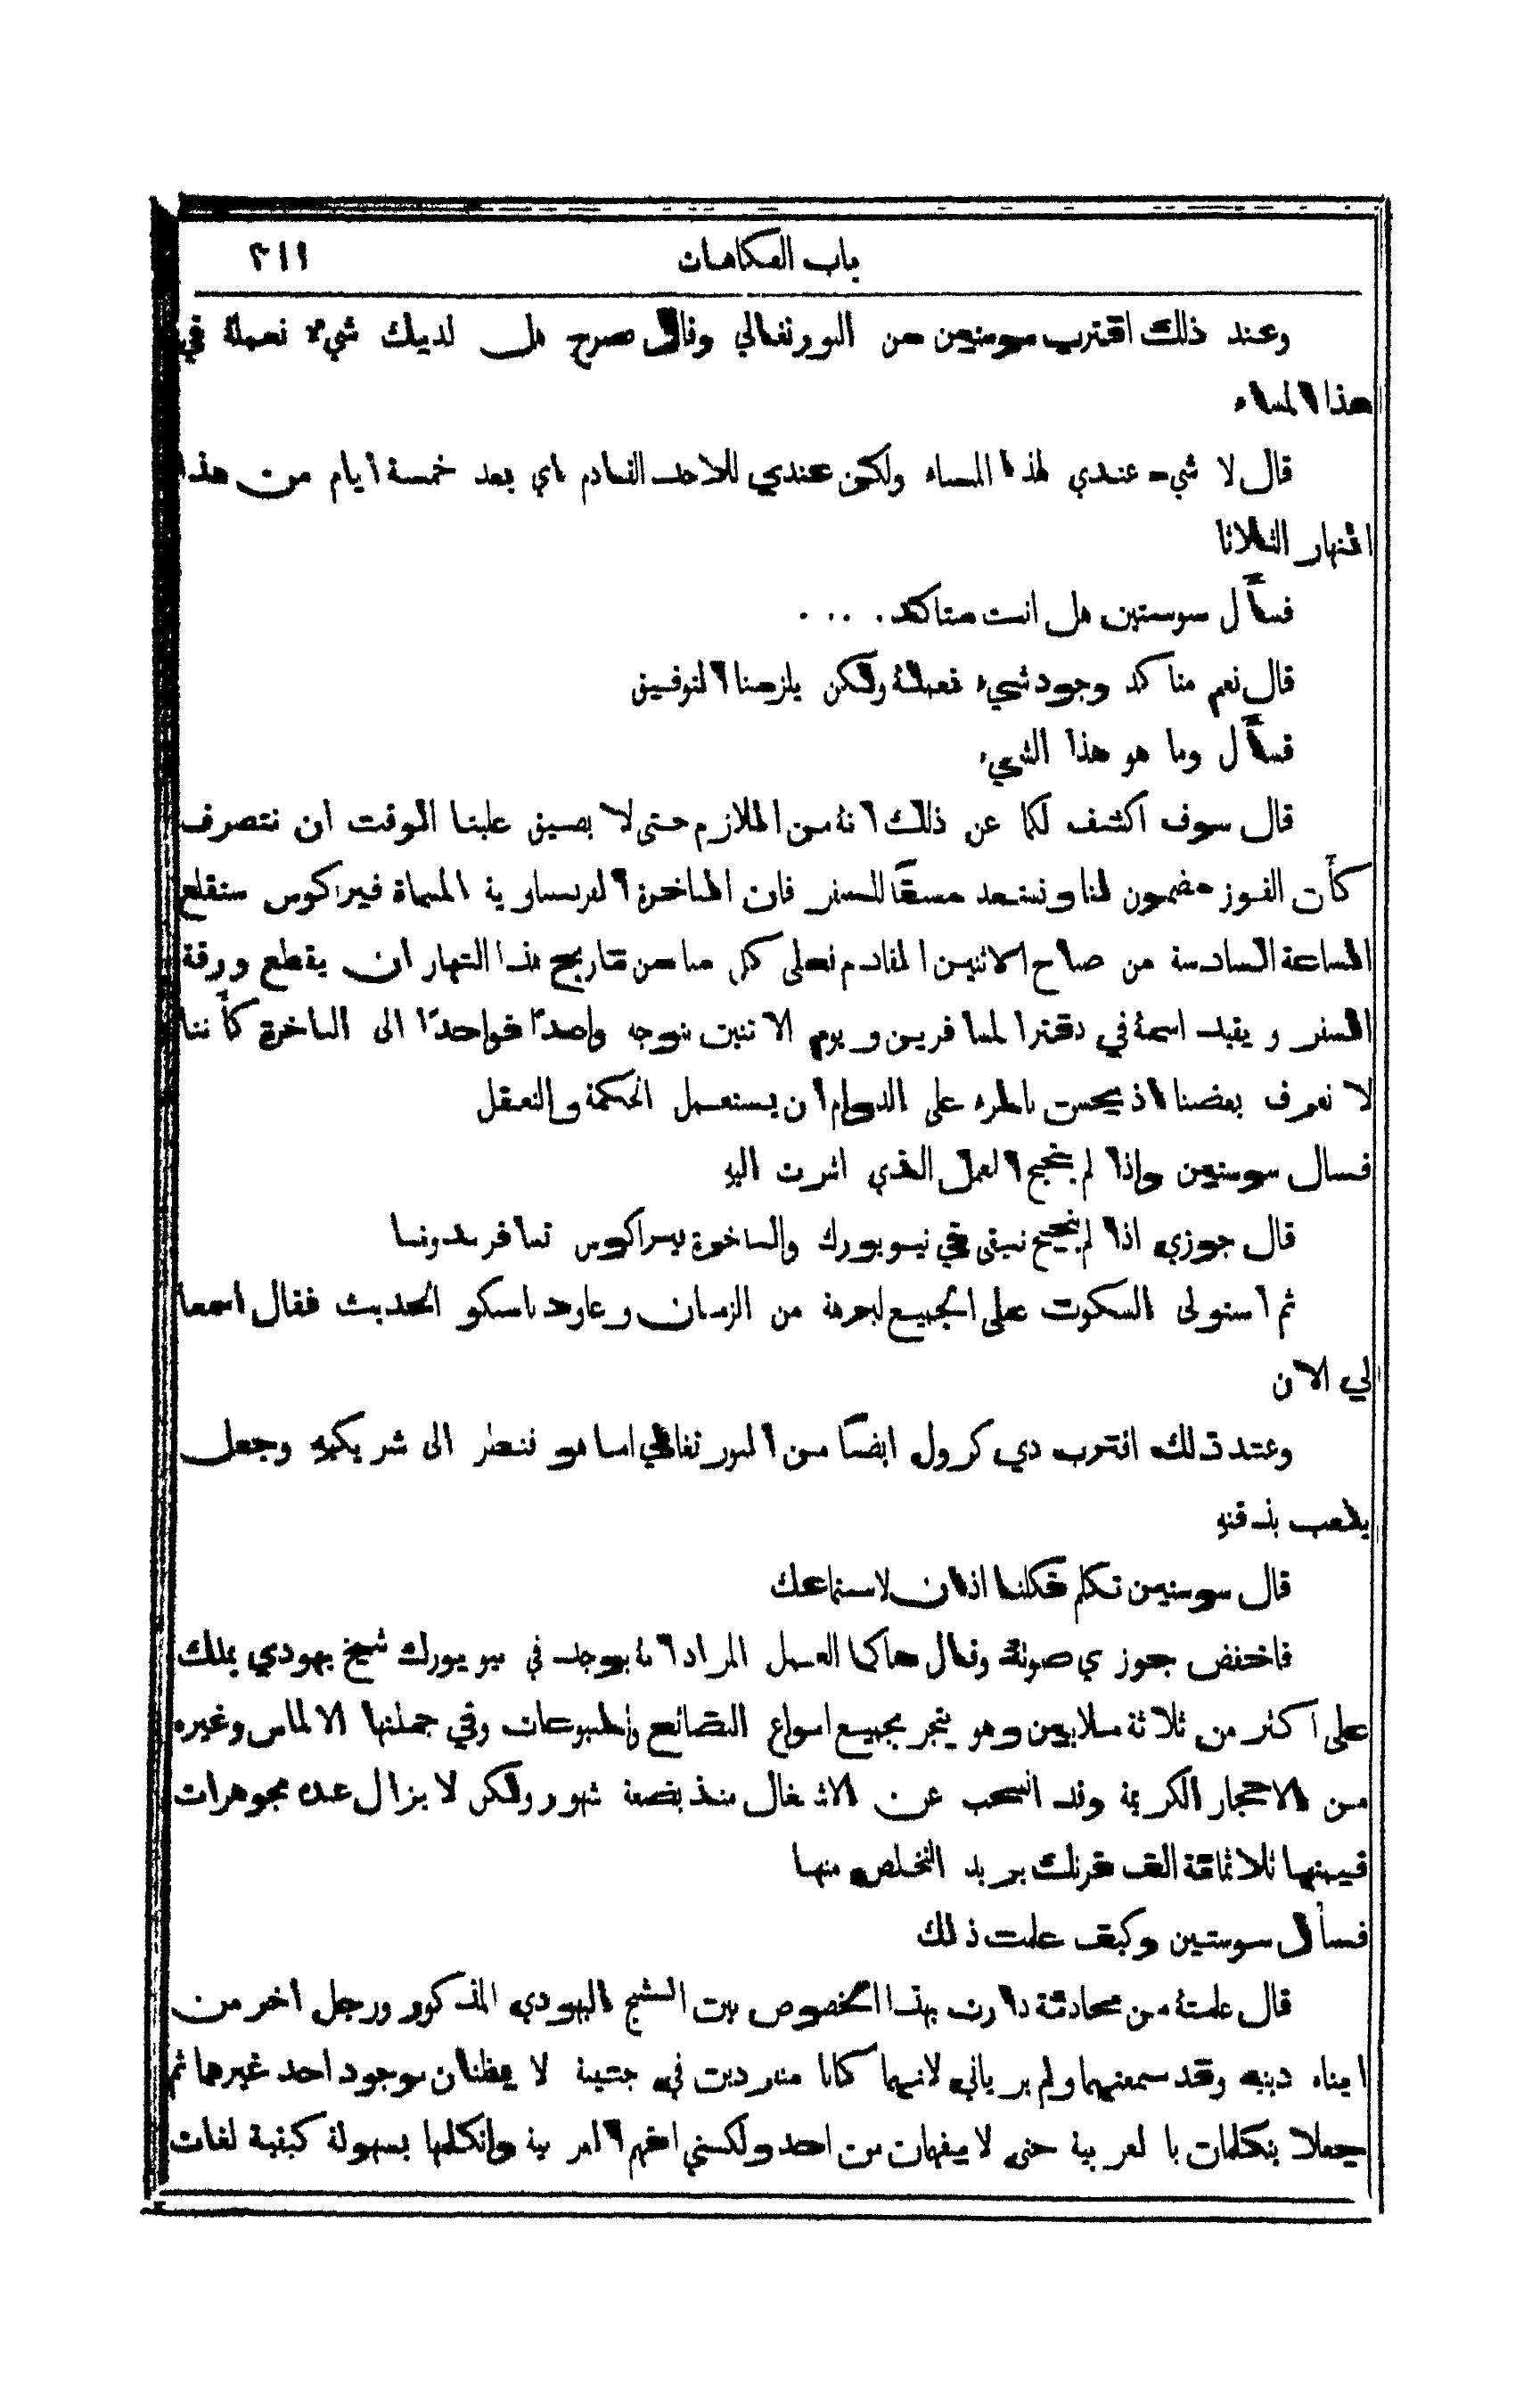 باب الفكاهات ٣١١
وعند ذلك اقترب سوستين من البورتغالي وقال صرح هل لديك شيء نعمله في
هذا المساء
قال لا شيء عندي لهذا المساء ولكن عندي للاحد القادم اي بعد خمسة ايام من هذا
النهار الثلاثا
فسأل سوستين هل انت متاكد . . . .
قال نعم متاكد وجود شيء نعمله ولكن يلزمنا التوفيق
فسأل وما هو هذا الشيء
قال سوف اكشف لكما عن ذلك انه من اللازم حتى لا يضيق علينا الوقت ان نتصرف
كأن الفوز مضمون لنا ونستعد مسبقًا للسفر فان الباخرة الفرنساوية المسماة فيراكوس ستقلع
الساعة السادسة من صباح الاثنين القادم فعلى كل منا من تاريخ هذا النهار ان يقطع ورقة
السفر ويقيد اسمه في دفتر المسافرين ويوم الاثنين نتوجه واحدًا فواحدًا الى الباخرة كأننا
لا نعرف بعضنا اذ يحسن بالمرء على الدوام ان يستعمل الحكمة والتعقل
فسال سوستين واذا لم ينجح العمل الذي اشرت اليه
قال جوزي اذا لم ينجح نبقى في نيويورك والباخرة فيراكوس تسافر بدوننا
ثم استولى السكوت على الجميع لبرهة من الزمان وعاود باسكو الحديث فقال اسمعا
لي الان
وعند ذلك اقترب دي كرول ايضًا من البورتغالي اما هو فنظر الى شريكيه وجعل
يلعب بذقنه
قال سوستين تكلم فكلنا اذان لاستماعك
فاخفض جوزي صوته وقال هاكما العمل المراد انه يوجد في نيويورك شيخ يهودي يملك
على اكثر من ثلاثة ملايين وهو يتجر بجميع انواع البضائع والمبيوعات وفي جملتها الالماس وغيره
من الاحجار الكريمة وقد انسحب عن الاشغال منذ بضعة شهور ولكن لا يزال عنده مجوهرات
قيمتها ثلاثمائة الف فرنك يريد التخلص منها
فسأل سوستين وكيف علمت ذلك
قال علمته من محادثة دارت بهذا الخصوص بين الشيخ اليهودي المذكور ورجل اخر من
ابناء دينه وقد سمعتهما ولم يرياني لانهما كانا منفردين في جنينة لا يظنان بوجود احد غيرهما ثم
جعلا يتكلمان بالعربية حتى لا يفهمان من احد ولكنني افهم العربية واتكلمها بسهولة كبقية لغات